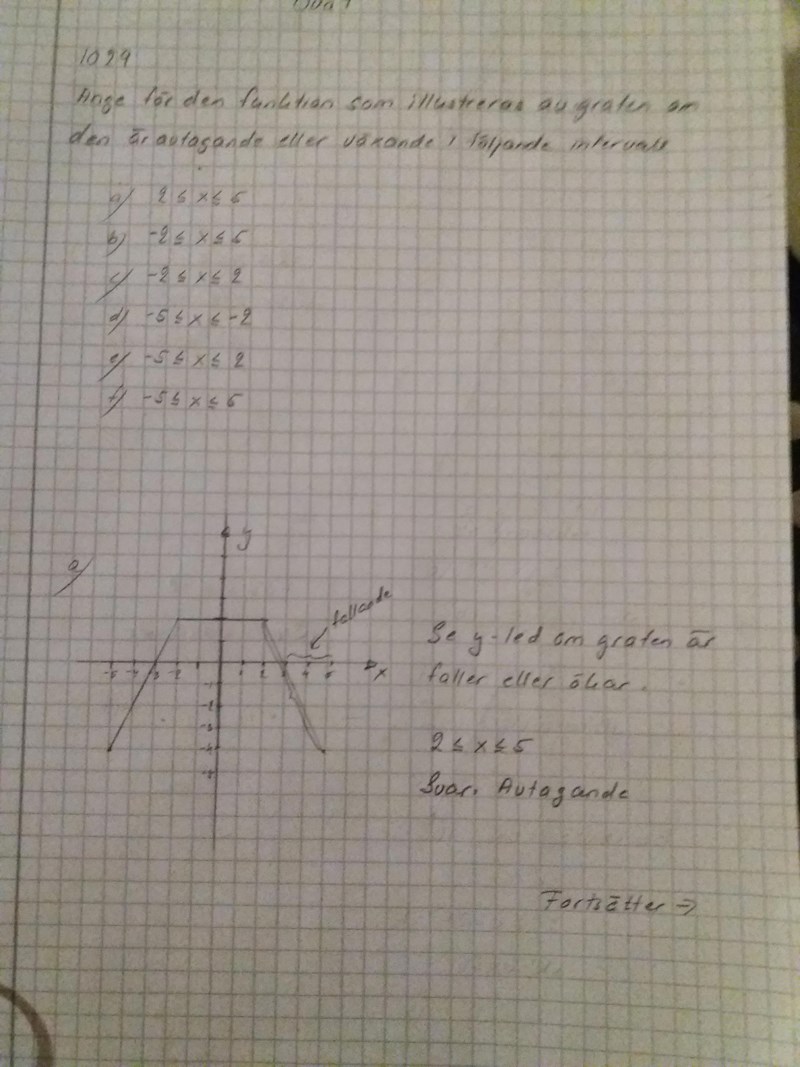 1029
Ange för den funktion som illustreras av grafen om
den är avtagande eller växande i följande intervall
a) 2 ≤ x ≤ 5
b) -2 ≤ x ≤ 5
c) -2 ≤ x ≤ 2
d) -5 ≤ x ≤ -2
e) -5 ≤ x ≤ 2
f) -5 ≤ x ≤ 5
a)
y
fallande
x
-5 -4 -3 -2 1 2 3 4 5
-1
-2
-3
-4
-5
Se y-led om grafen är
faller eller ökar.
2 ≤ x ≤ 5
Svar. Avtagande
Fortsätter ⇒